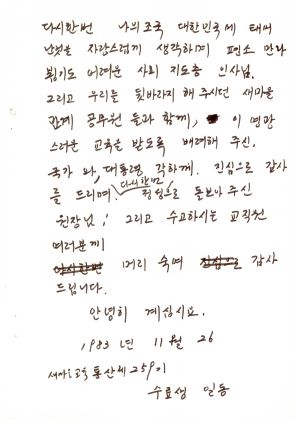 다시한번 나의조국 대한민국에 태어
난것을 자랑스럽게 생각하며 평소 만나
뵙기도 어려운 사회 지도층 인사님,
그리고 우리들 뒷바라지 해 주시던 새마을
관계 공무원 들과 함께, 이 영광
스러운 교육을 받도록 배려해 주신,
국가 와, 대통령 각하께. 진심으로 감사
를 드리며. 다시한번 정성으로 돌보아 주신
원장님, 그리고 수고하시는 교직원
여러분께
머리 숙여 감사
드립니다.
안녕히 계십시요.
1983 년 11월 26
새마을교육 통산제 259기
수료생 일동